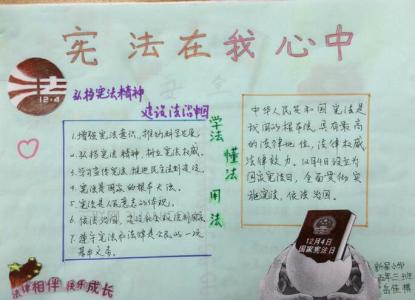 宪法在我心中
法
12.4
弘扬宪法精神
建设法治中国
1.增强宪法意识,推动科学发展。
2.弘扬宪法精神,树立宪法权威。
3.学习宣传宪法,推进民主法制建设。
4.宪法是国家的根本大法。
5.宪法是人民意志的体现。
6.依法治国,建设社会主义法治国家
7.遵守宪法和法律是公民的一项
基本义务。
学法
懂法
用法
中华人民共和国宪法是
我国的根本法,具有最高
的法律地位,法律权威,
法律效力。12月4日设立为
国家宪法日,全面贯彻实
施宪法,依法治国。
12月4日
国家宪法日
法律相伴 快乐成长
五年三班